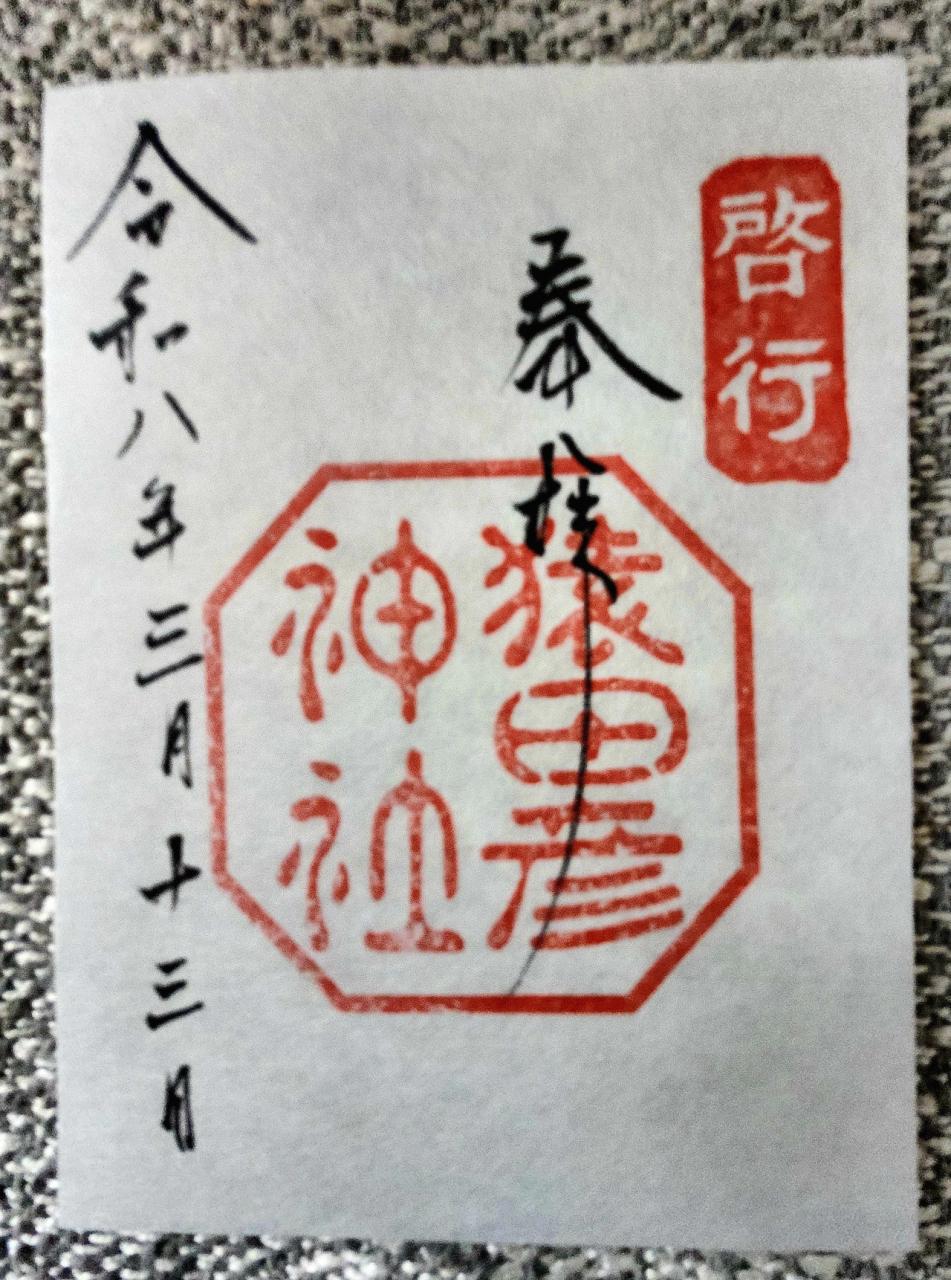 啓行
奉拝
猿田彦
神社
令和八年三月十三日